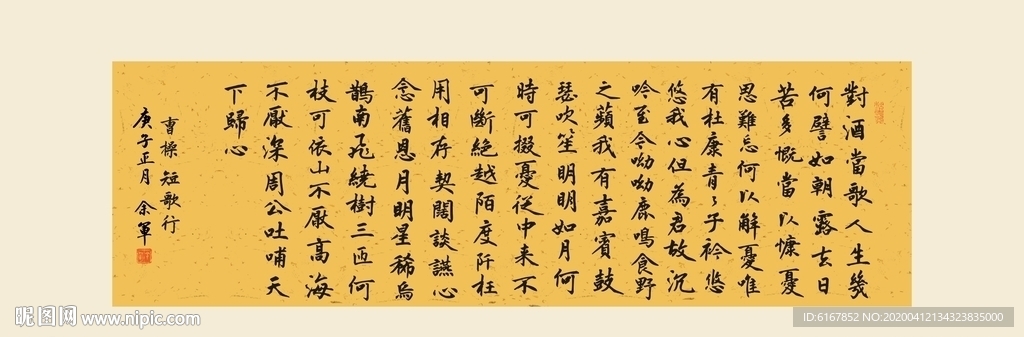 對酒當歌人生幾
何譬如朝露去日
苦多慨當以慷憂
思難忘何以解憂唯
有杜康青々子衿悠
悠我心但為君故沉
吟至今呦呦鹿鳴食野
之蘋我有嘉賓鼓
瑟吹笙明明如月何
時可掇憂從中来不
可斷絕越陌度阡枉
用相存契闊談讌心
念舊恩月明星稀烏
鵲南飛繞樹三匝何
枝可依山不厭高海
不厭深周公吐哺天
下歸心
曹操 短歌行
庚子正月 余軍
昵图网 www.nipic.com
ID:6167852 NO:20200412134323835000